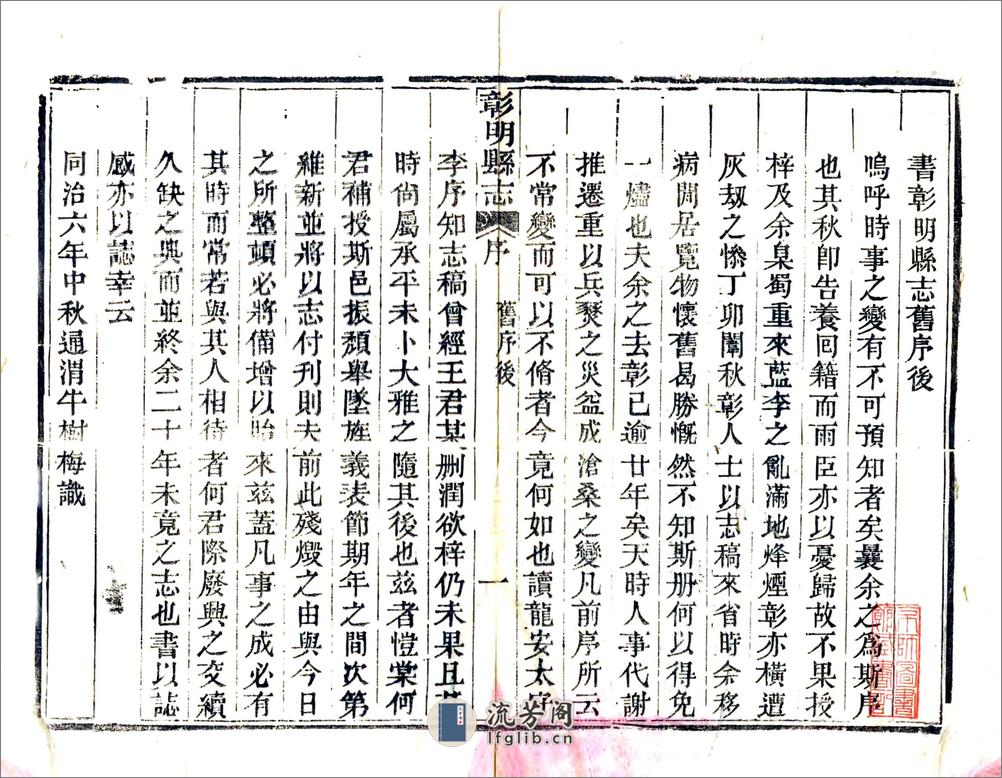 書彰明縣志舊序後
嗚呼時事之變有不可預知者矣曩余之爲斯序
也其秋卽告養回籍而雨臣亦以憂歸故不果授
梓及余臬蜀重來藍李之亂滿地烽煙彰亦橫遭
灰刼之慘丁卯闈秋彰人士以志稿來省時余移
病閒居覽物懷舊曷勝慨然不知斯册何以得免
一燼也夫余之去彰已逾廿年矣天時人事代謝
推遷重以兵燹之災益成滄桑之變凡前序所云
不常變而可以不脩者今竟何如也讀龍安太守
彰明縣志
序
舊序後
一
李序知志稿曾經王君某刪潤欲梓仍未果且其
時尙屬承平未卜大雅之隨其後也玆者愷棠何
君補授斯邑振頹舉墜旌義表節期年之間次第
維新並將以志付刊則夫前此殘燬之由與今日
之所整頓必將備增以貽來玆蓋凡事之成必有
其時而常若與其人相待者何君際廢興之交續
久缺之典而並終余二十年未竟之志也書以誌
感亦以誌幸云
同治六年中秋通渭牛樹梅識
流芳阁
lfglib.cn